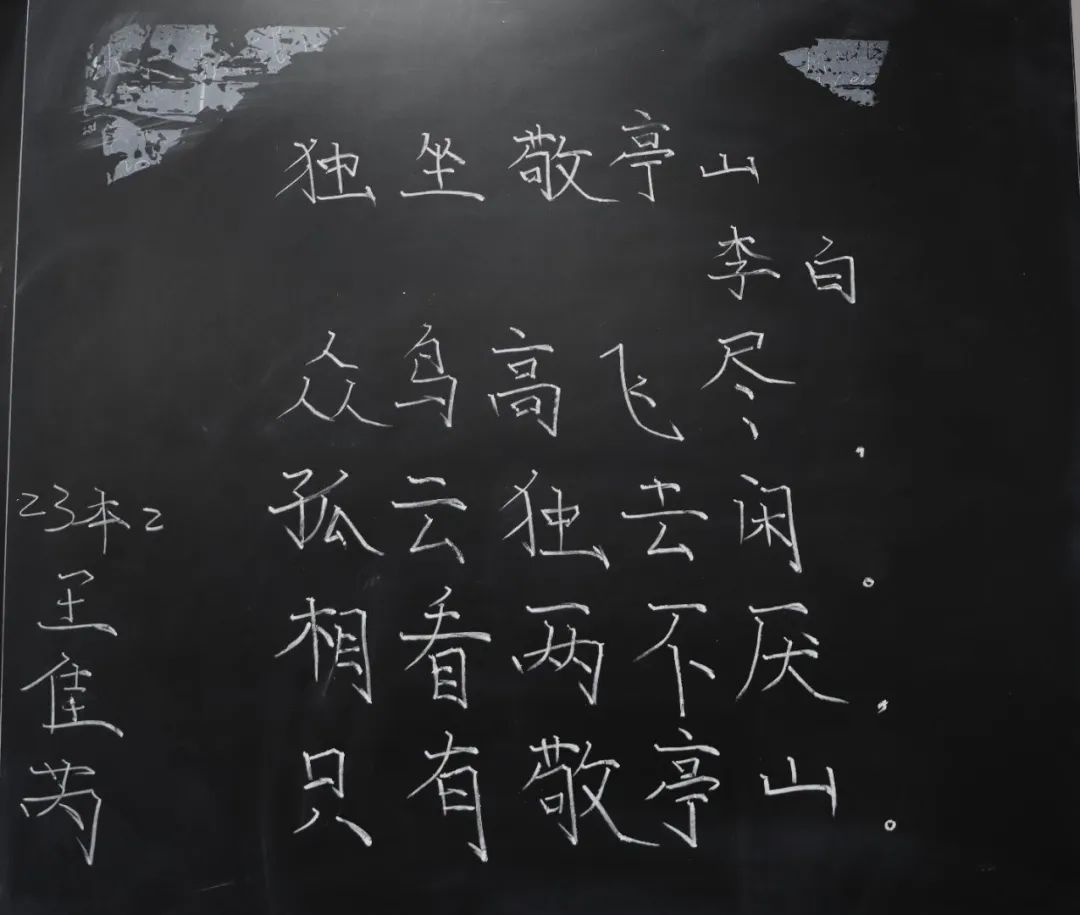 独坐敬亭山
李白
众鸟高飞尽，
孤云独去闲。
相看两不厌，
只有敬亭山。
23本2
王佳芮